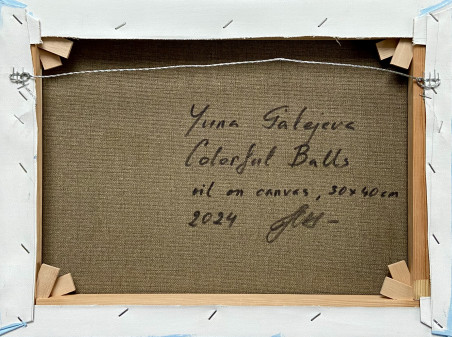 Yuna Galejeva
Colorful Balls
oil on canvas, 30x40cm
2024